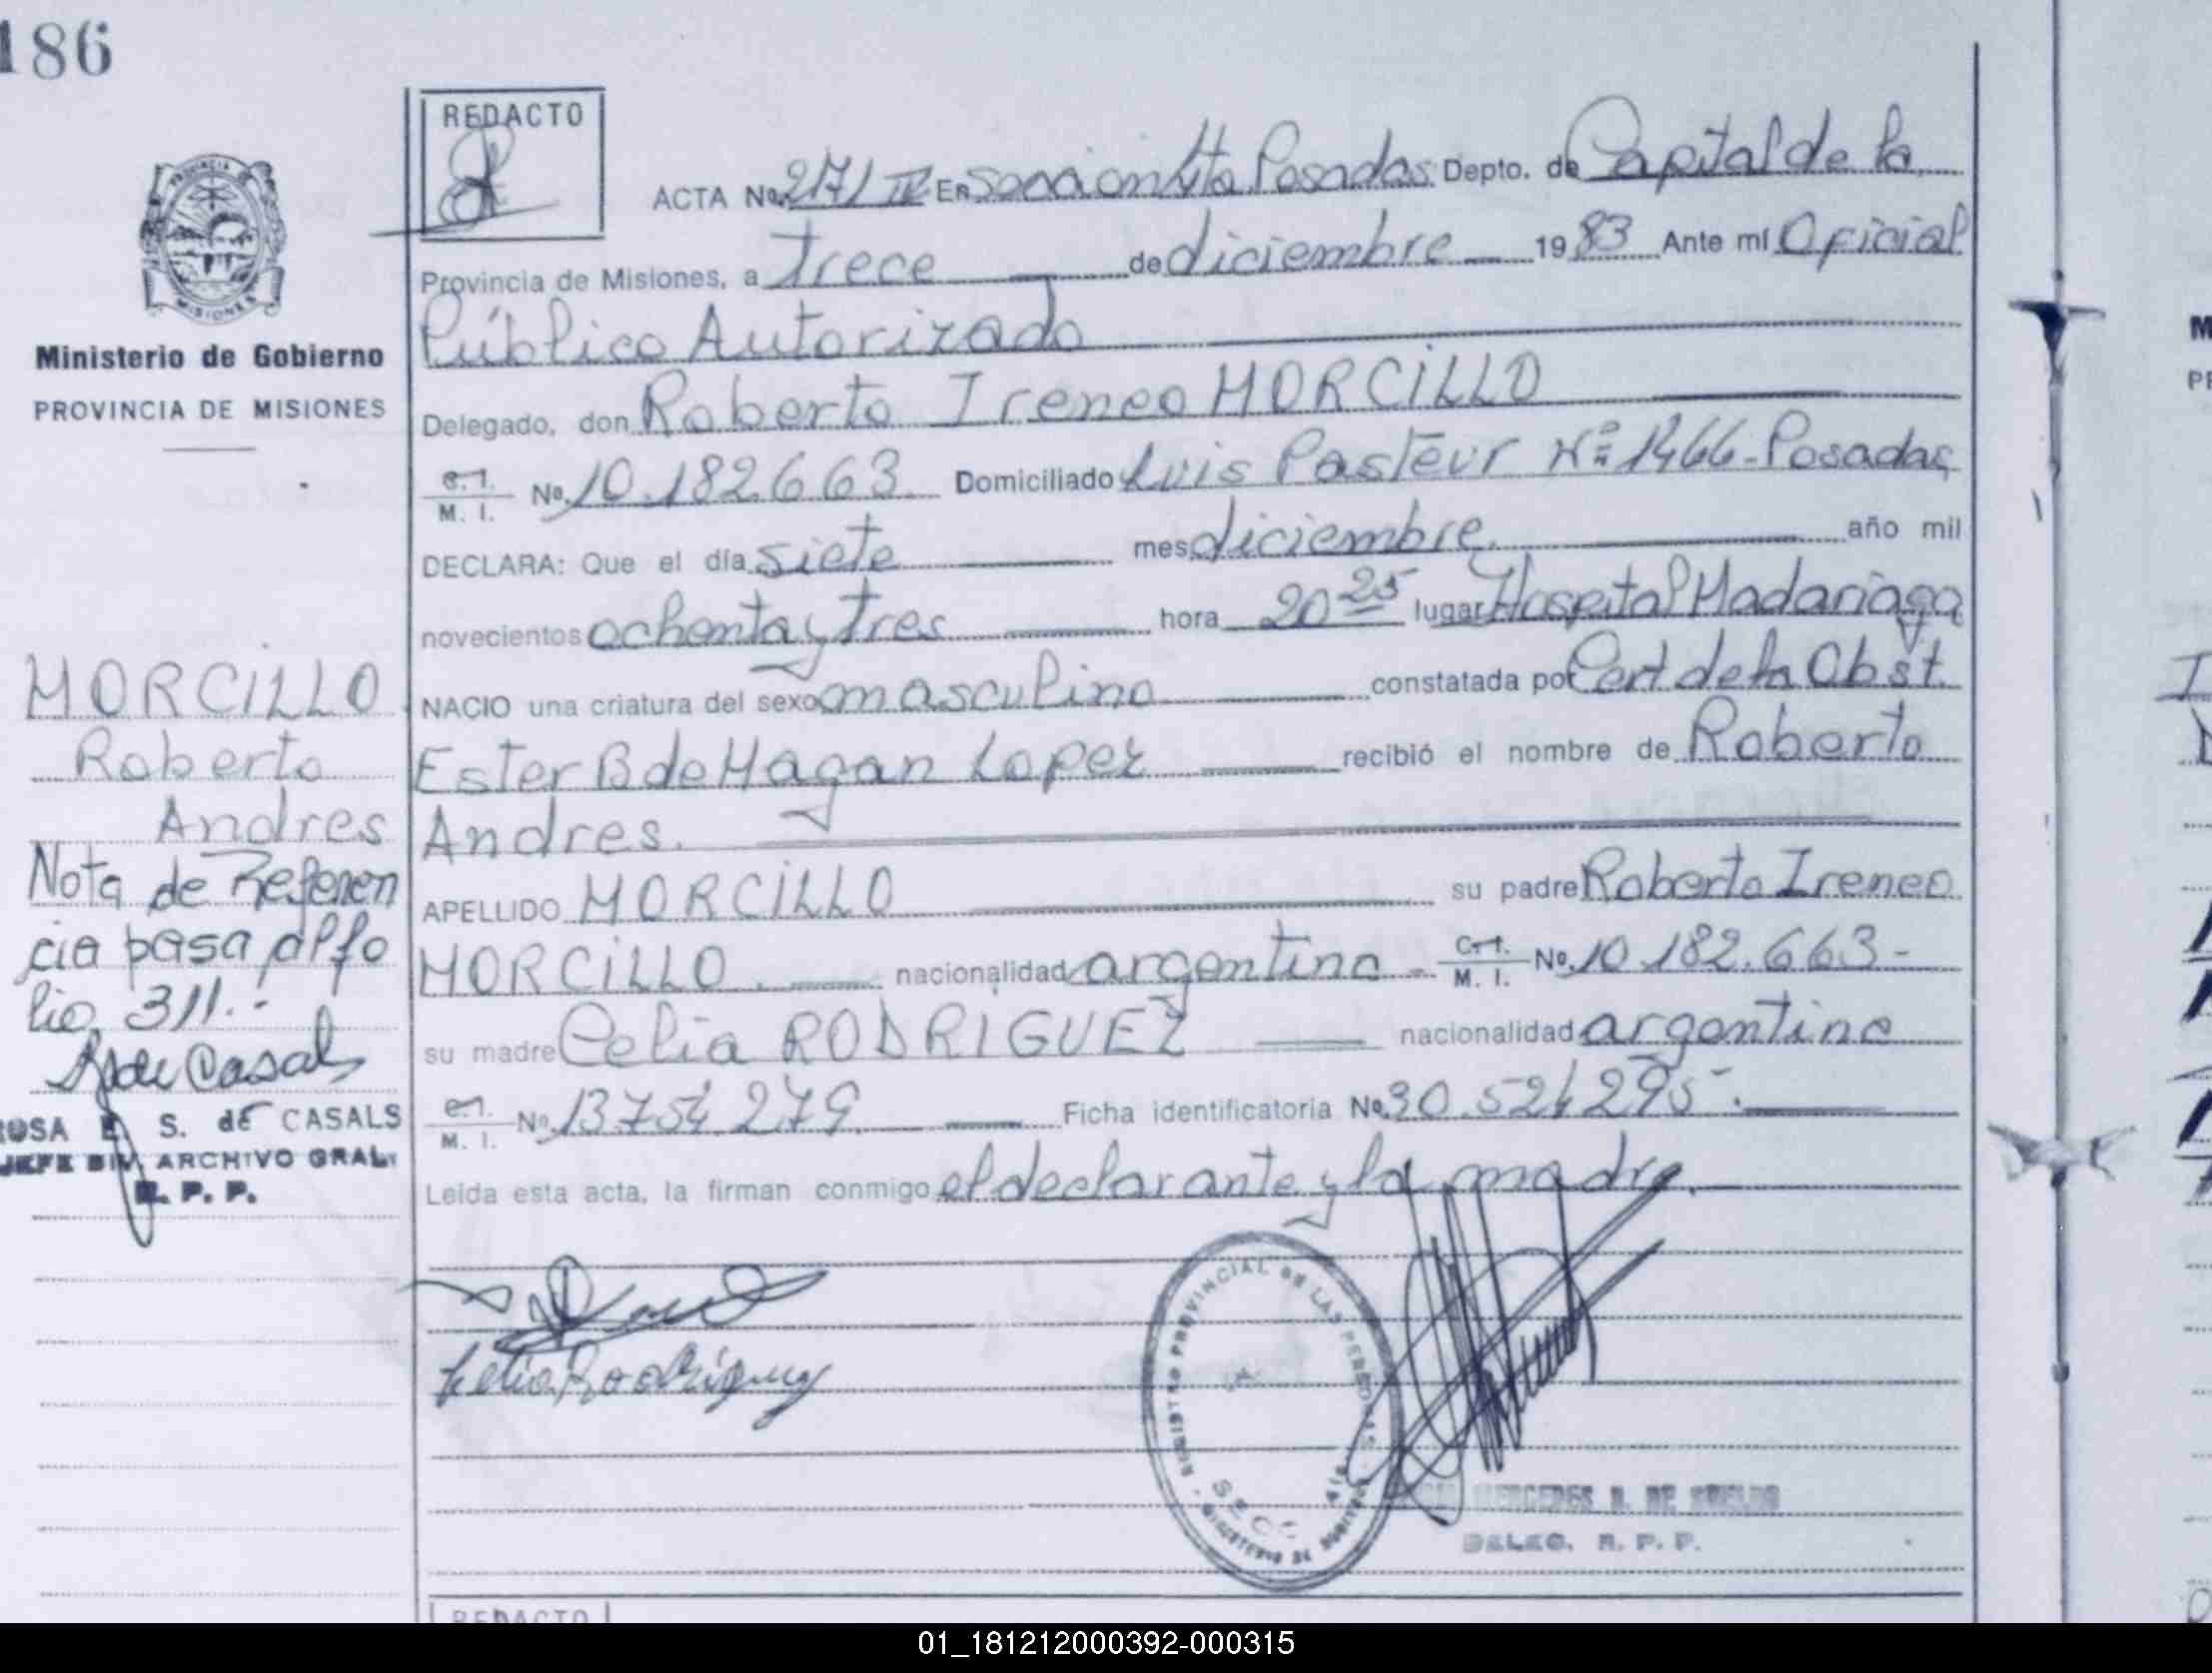 186
REDACTO
PROVINCIA DE
MISIONES
Ministerio de Gobierno
PROVINCIA DE MISIONES
ACTA No. 217/IV En Sección 4ta Posadas Depto. de Capital de la
Provincia de Misiones, a trece de diciembre 1983 Ante mí Oficial
Público Autorizado
Delegado, don Roberto Ireneo MORCILLO
C.I. M. I. No. 10.182.663 Domiciliado Luis Pasteur Nº 1466-Posadas
DECLARA: Que el día siete mes diciembre año mil
novecientos ochenta y tres hora 20 25 lugar Hospital Madariaga
NACIO una criatura del sexo masculino constatada por Cert de la Obst.
Ester B de Hagan Lopez recibió el nombre de Roberto
Andres.
APELLIDO MORCILLO su padre Roberto Ireneo
MORCILLO nacionalidad argentina - C.I. M. I. No. 10.182.663-
su madre Celia RODRIGUEZ nacionalidad argentina
C.I. M. I. No. 13.754.279 Ficha identificatoria No. 30.524.295-.
Leída esta acta, la firman conmigo el declarante y la madre.
MORCILLO
Roberto
Andres
Nota de Referen
cia pasa al fo
lio 311.-
R de Casals
ROSA E. S. de CASALS
JEFE DIV. ARCHIVO GRAL.
R. P. P.
Celia Rodriguez
REGISTRO PROVINCIAL DE LAS PERSONAS - MINISTERIO DE GOBIERNO
SECC. 4ta
MERCEDES
DELEG. R. P. P.
REDACTO
01_181212000392-000315